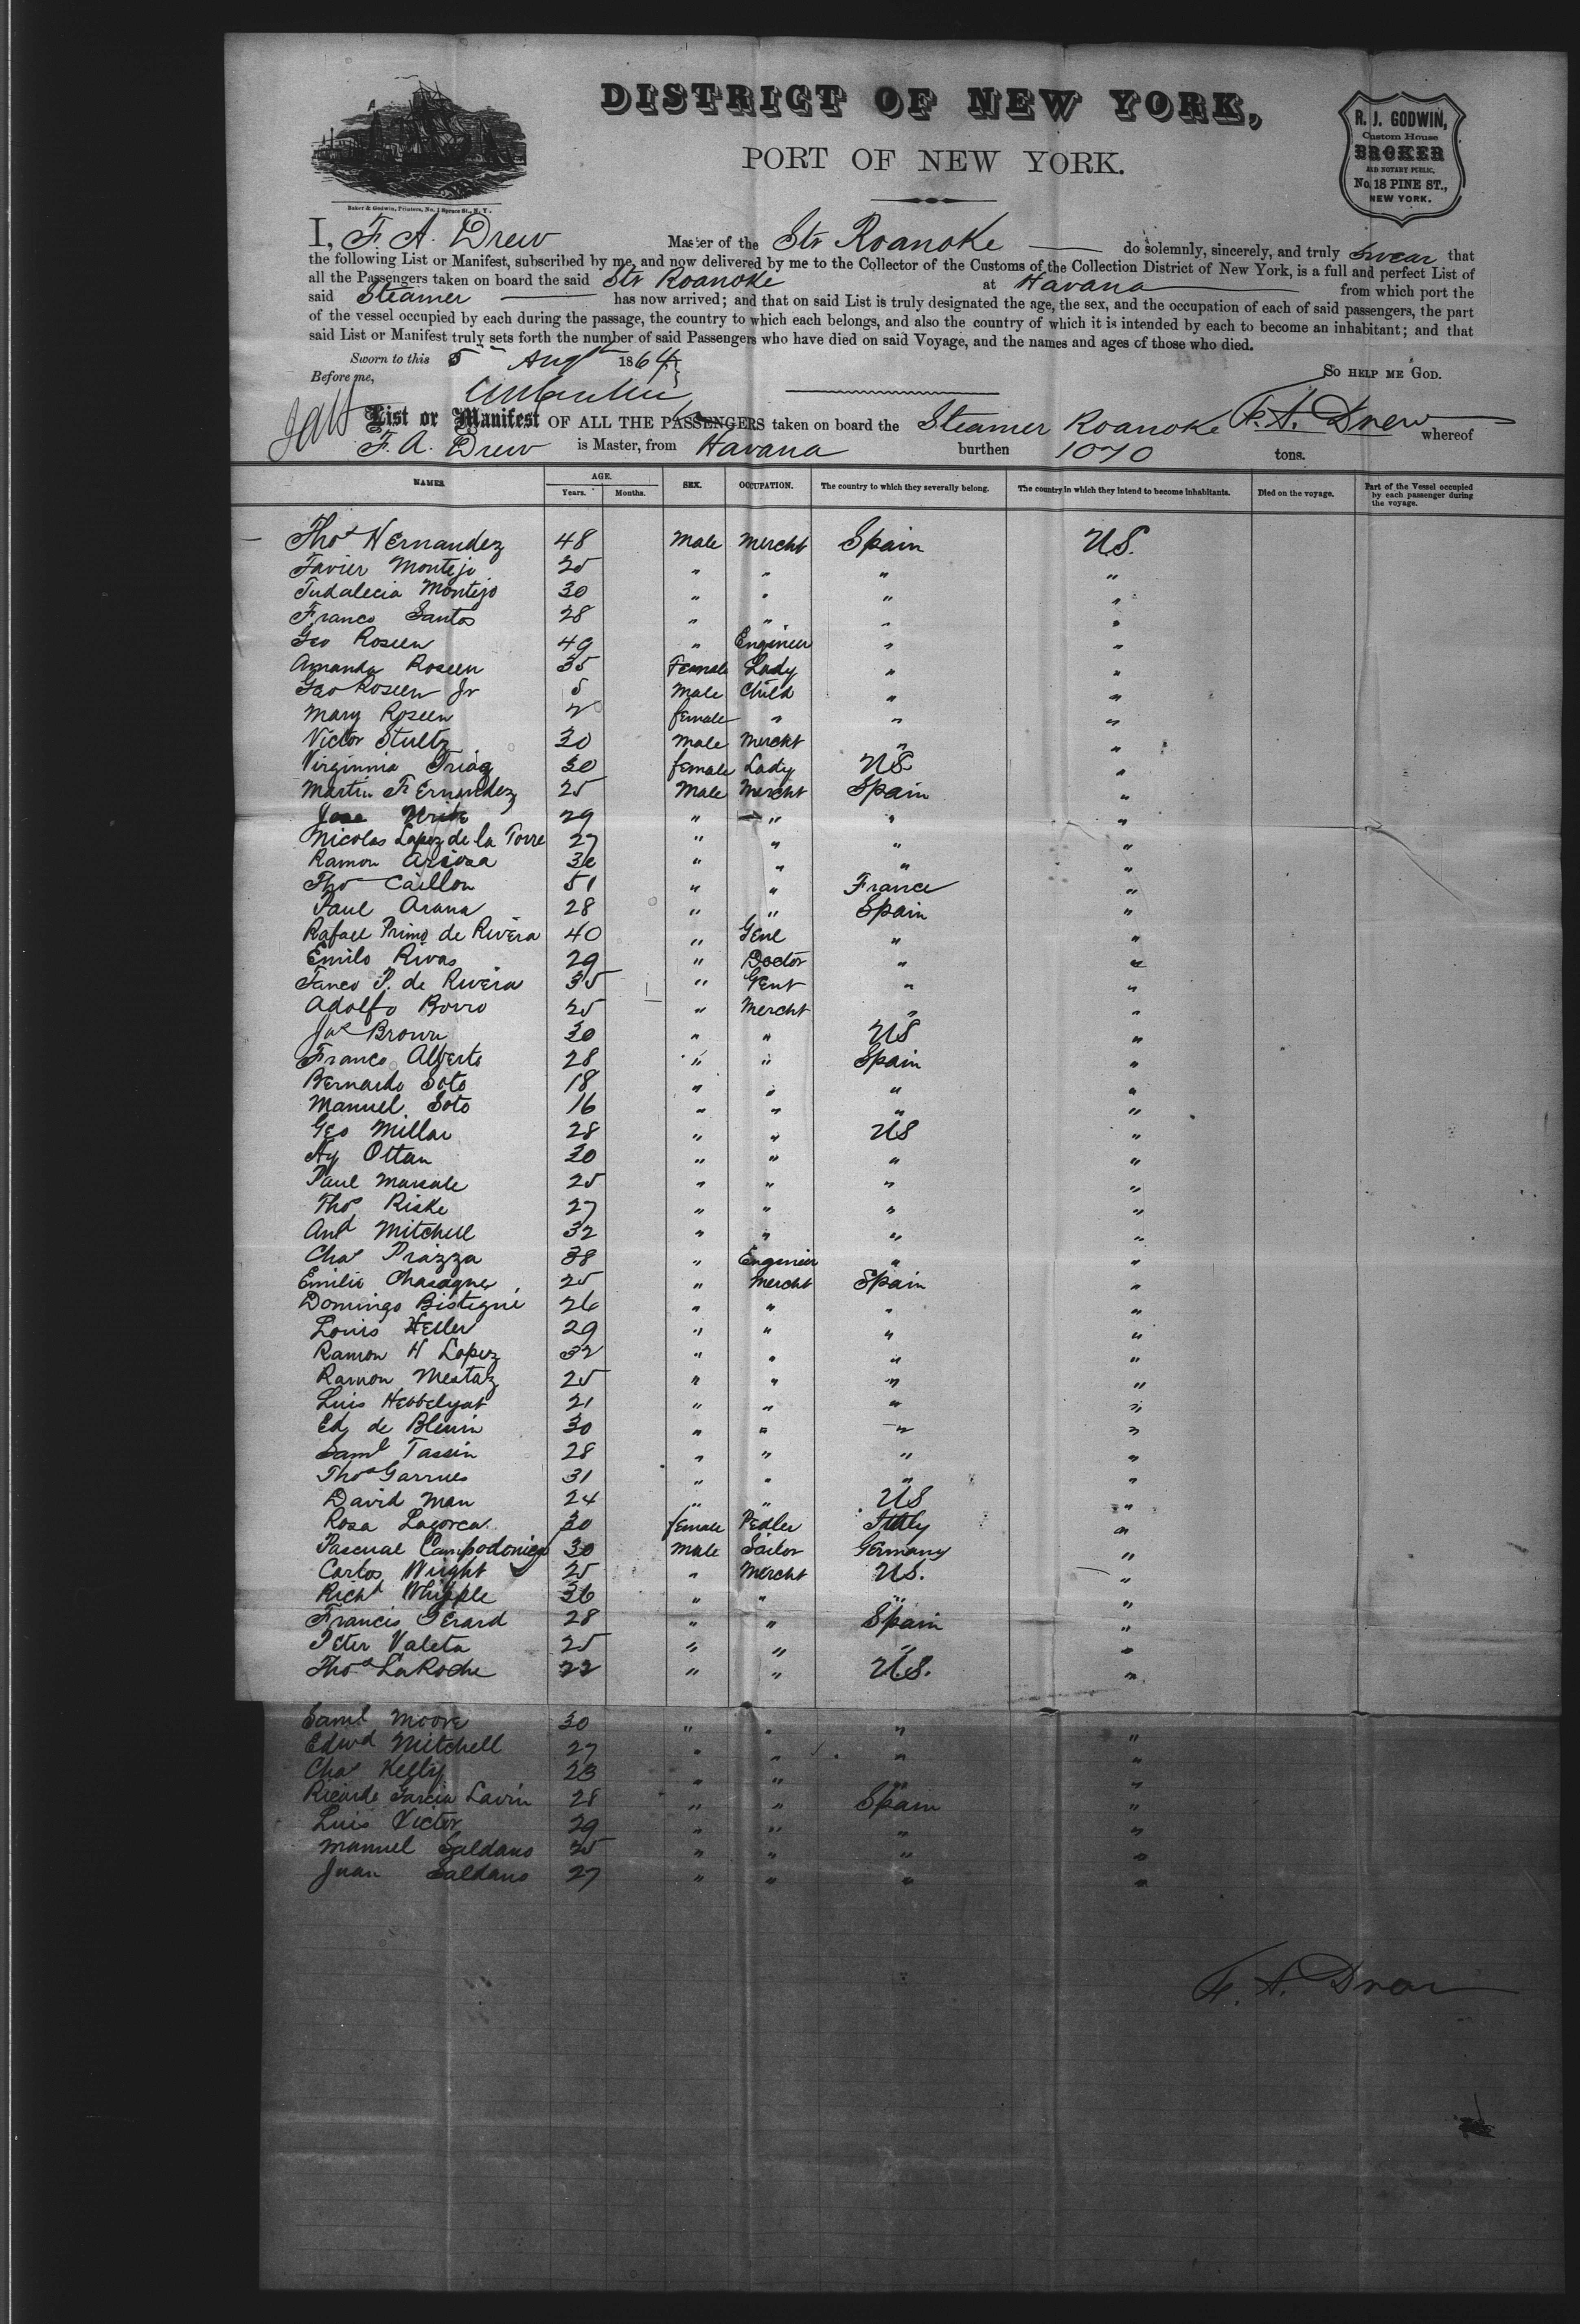 DISTRICT OF NEW YORK,
PORT OF NEW YORK.
R. J. GODWIN,
Custom House
BROKER
AND NOTARY PUBLIC,
No. 18 PINE ST.,
NEW YORK.
Baker & Godwin, Printers, No. 1 Spruce St., N. Y.
I, F. A. Drew Master of the Str Roanoke do solemnly, sincerely, and truly swear that
the following List or Manifest, subscribed by me, and now delivered by me to the Collector of the Customs of the Collection District of New York, is a full and perfect List of
all the Passengers taken on board the said Str Roanoke at Havana from which port the
said Steamer has now arrived; and that on said List is truly designated the age, the sex, and the occupation of each of said passengers, the part
of the vessel occupied by each during the passage, the country to which each belongs, and also the country of which it is intended by each to become an inhabitant; and that
said List or Manifest truly sets forth the number of said Passengers who have died on said Voyage, and the names and ages of those who died.
Sworn to this 5th Augt 1864
So HELP ME GOD.
Before me,
F. A. Drew
List or Manifest OF ALL THE PASSENGERS taken on board the Steamer Roanoke whereof
F. A. Drew is Master, from Havana burthen 1070 tons.
NAMES. AGE. Years. Months. SEX. OCCUPATION. The country to which they severally belong. The country in which they intend to become inhabitants. Died on the voyage. Part of the Vessel occupied by each passenger during the voyage.
Thos Hernandez 48 Male Mercht Spain US.
Favier Montejo 25 " " " "
Indalecia Montejo 30 " " " "
Franco Santos 28 " " " "
Geo Roseen 49 " Engineer " "
Amanda Roseen 35 Female Lady " "
Geo Roseen Jr 5 Male Child " "
Mary Roseen 2 female " " "
Victor Stultz 30 Male Mercht " "
Virginnia Triag 30 female Lady US "
Martin Fernandez 25 Male Mercht Spain "
29 " " " "
Nicolas Lopez de la Torre 27 " " " "
Ramon 30 " " " "
Thos Caillon 51 " " France "
Paul Arana 28 " " Spain "
Rafael Primo de Rivera 40 " Genl " "
Emilo Rivas 29 " Doctor " "
Fanco P. de Rivera 35 " Gent " "
Adolfo Borro 25 " Mercht " "
Jas Brown 30 " " US "
Franco Alberto 28 " " Spain "
Bernardo Soto 18 " " " "
Manuel Soto 16 " " " "
Geo Millar 28 " " US "
Hy Ottan 30 " " " "
Paul Marsale 25 " " " "
Thos Riske 27 " " " "
And Mitchell 32 " " " "
Chas Piazza 38 " Engineer " "
Emilio Chasagne 25 " Mercht Spain "
Domingo Bistegui 26 " " " "
Louis Heller 29 " " " "
Ramon H Lopez 32 " " " "
Ramon Mestaz 25 " " " "
Luis 21 " " " "
Ed de Blein 30 " " " "
Saml Tassin 28 " " " "
Thos Garrues 31 " " " "
David Man 24 " " US "
Rosa Lagorca 30 female Pedler Italy "
Pascual Campodonico 30 Male Sailor Germany "
Carlos Wright 25 " Mercht US. "
Richd Whipple 36 " " " "
Francis Gerard 28 " " Spain "
Peter Valeta 25 " " " "
Thos LaRoche 22 " " U.S. "
Saml Moore 30 " " " "
Edwd Mitchell 27 " " " "
Chas Kelly 23 " " " "
Ricardo Garcia Lavin 28 " " Spain "
Luis Victor 29 " " " "
Manuel Saldano 25 " " " "
Juan Saldano 27 " " " "
F. A. Drew